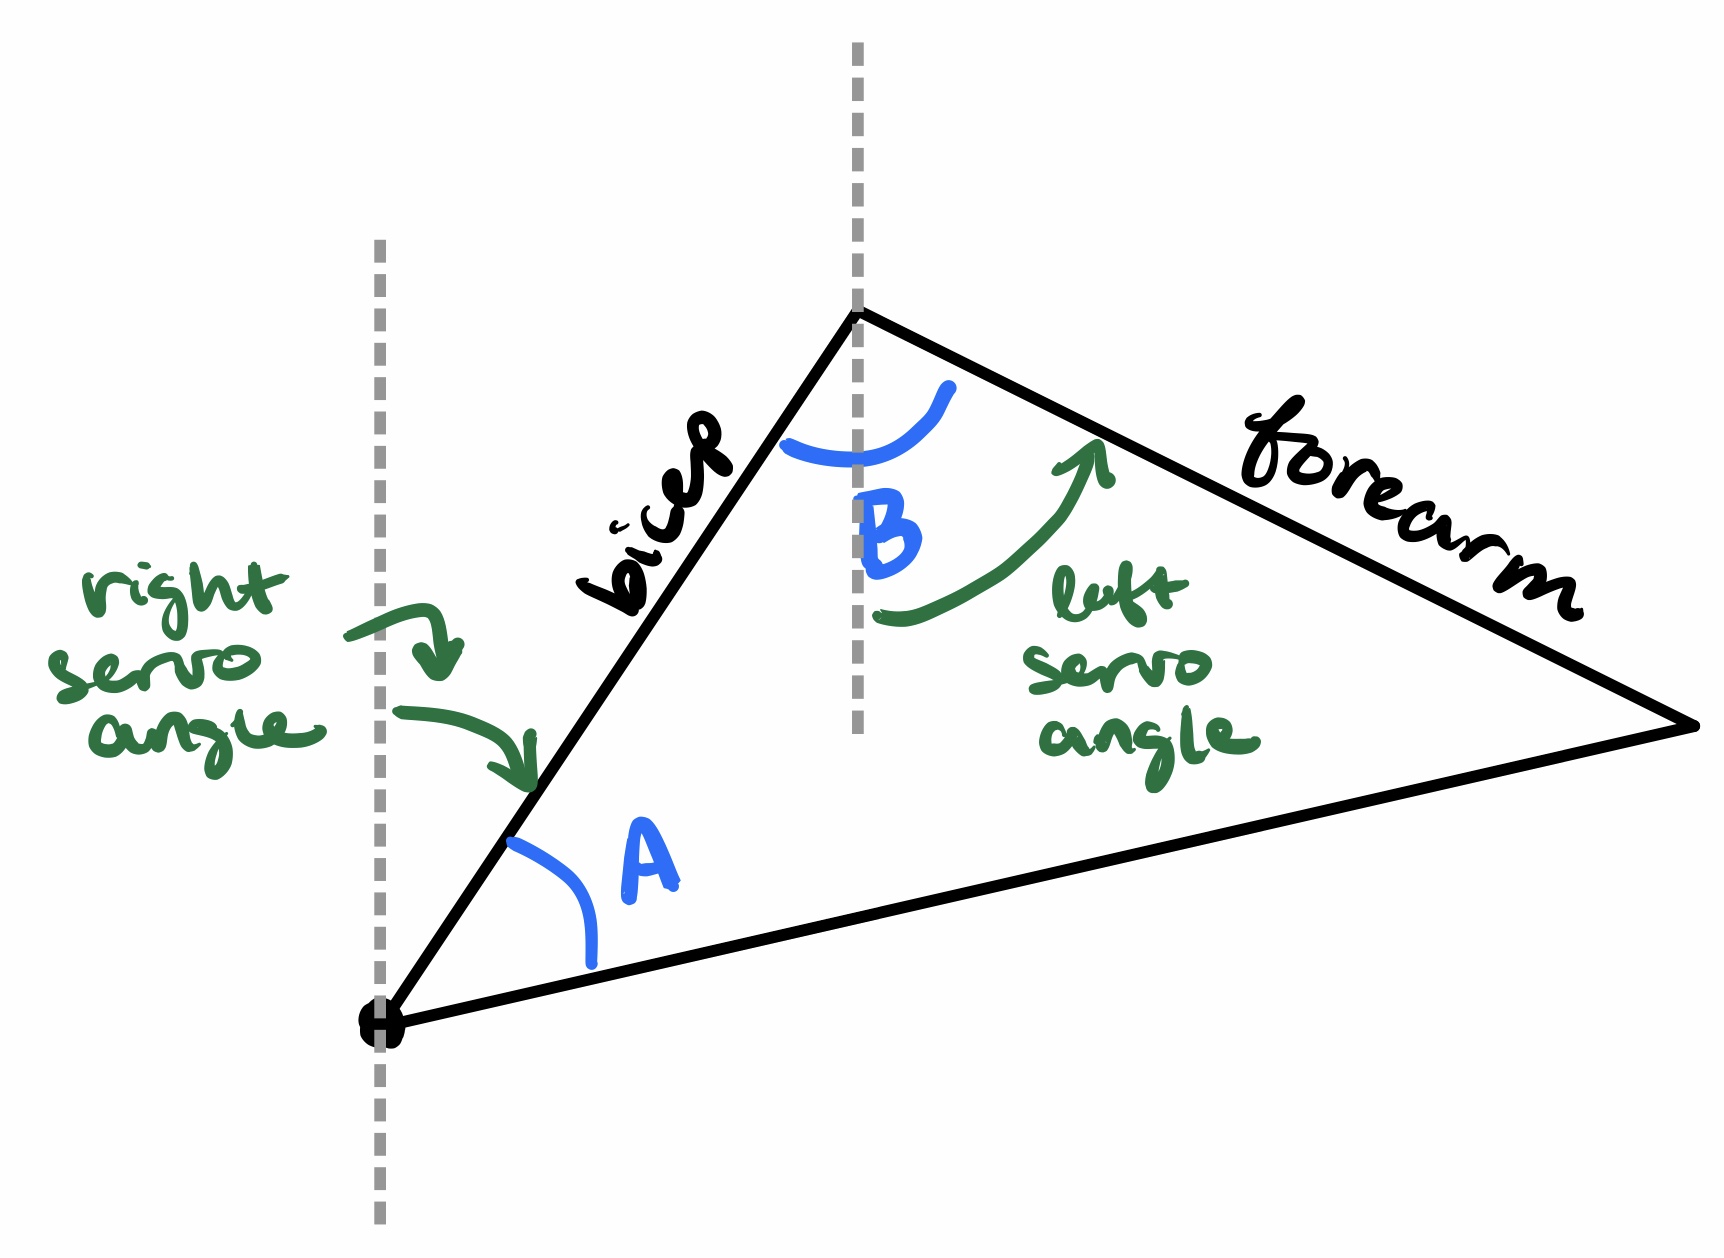 bicep
forearm
B
right
servo
angle
left
servo
angle
A